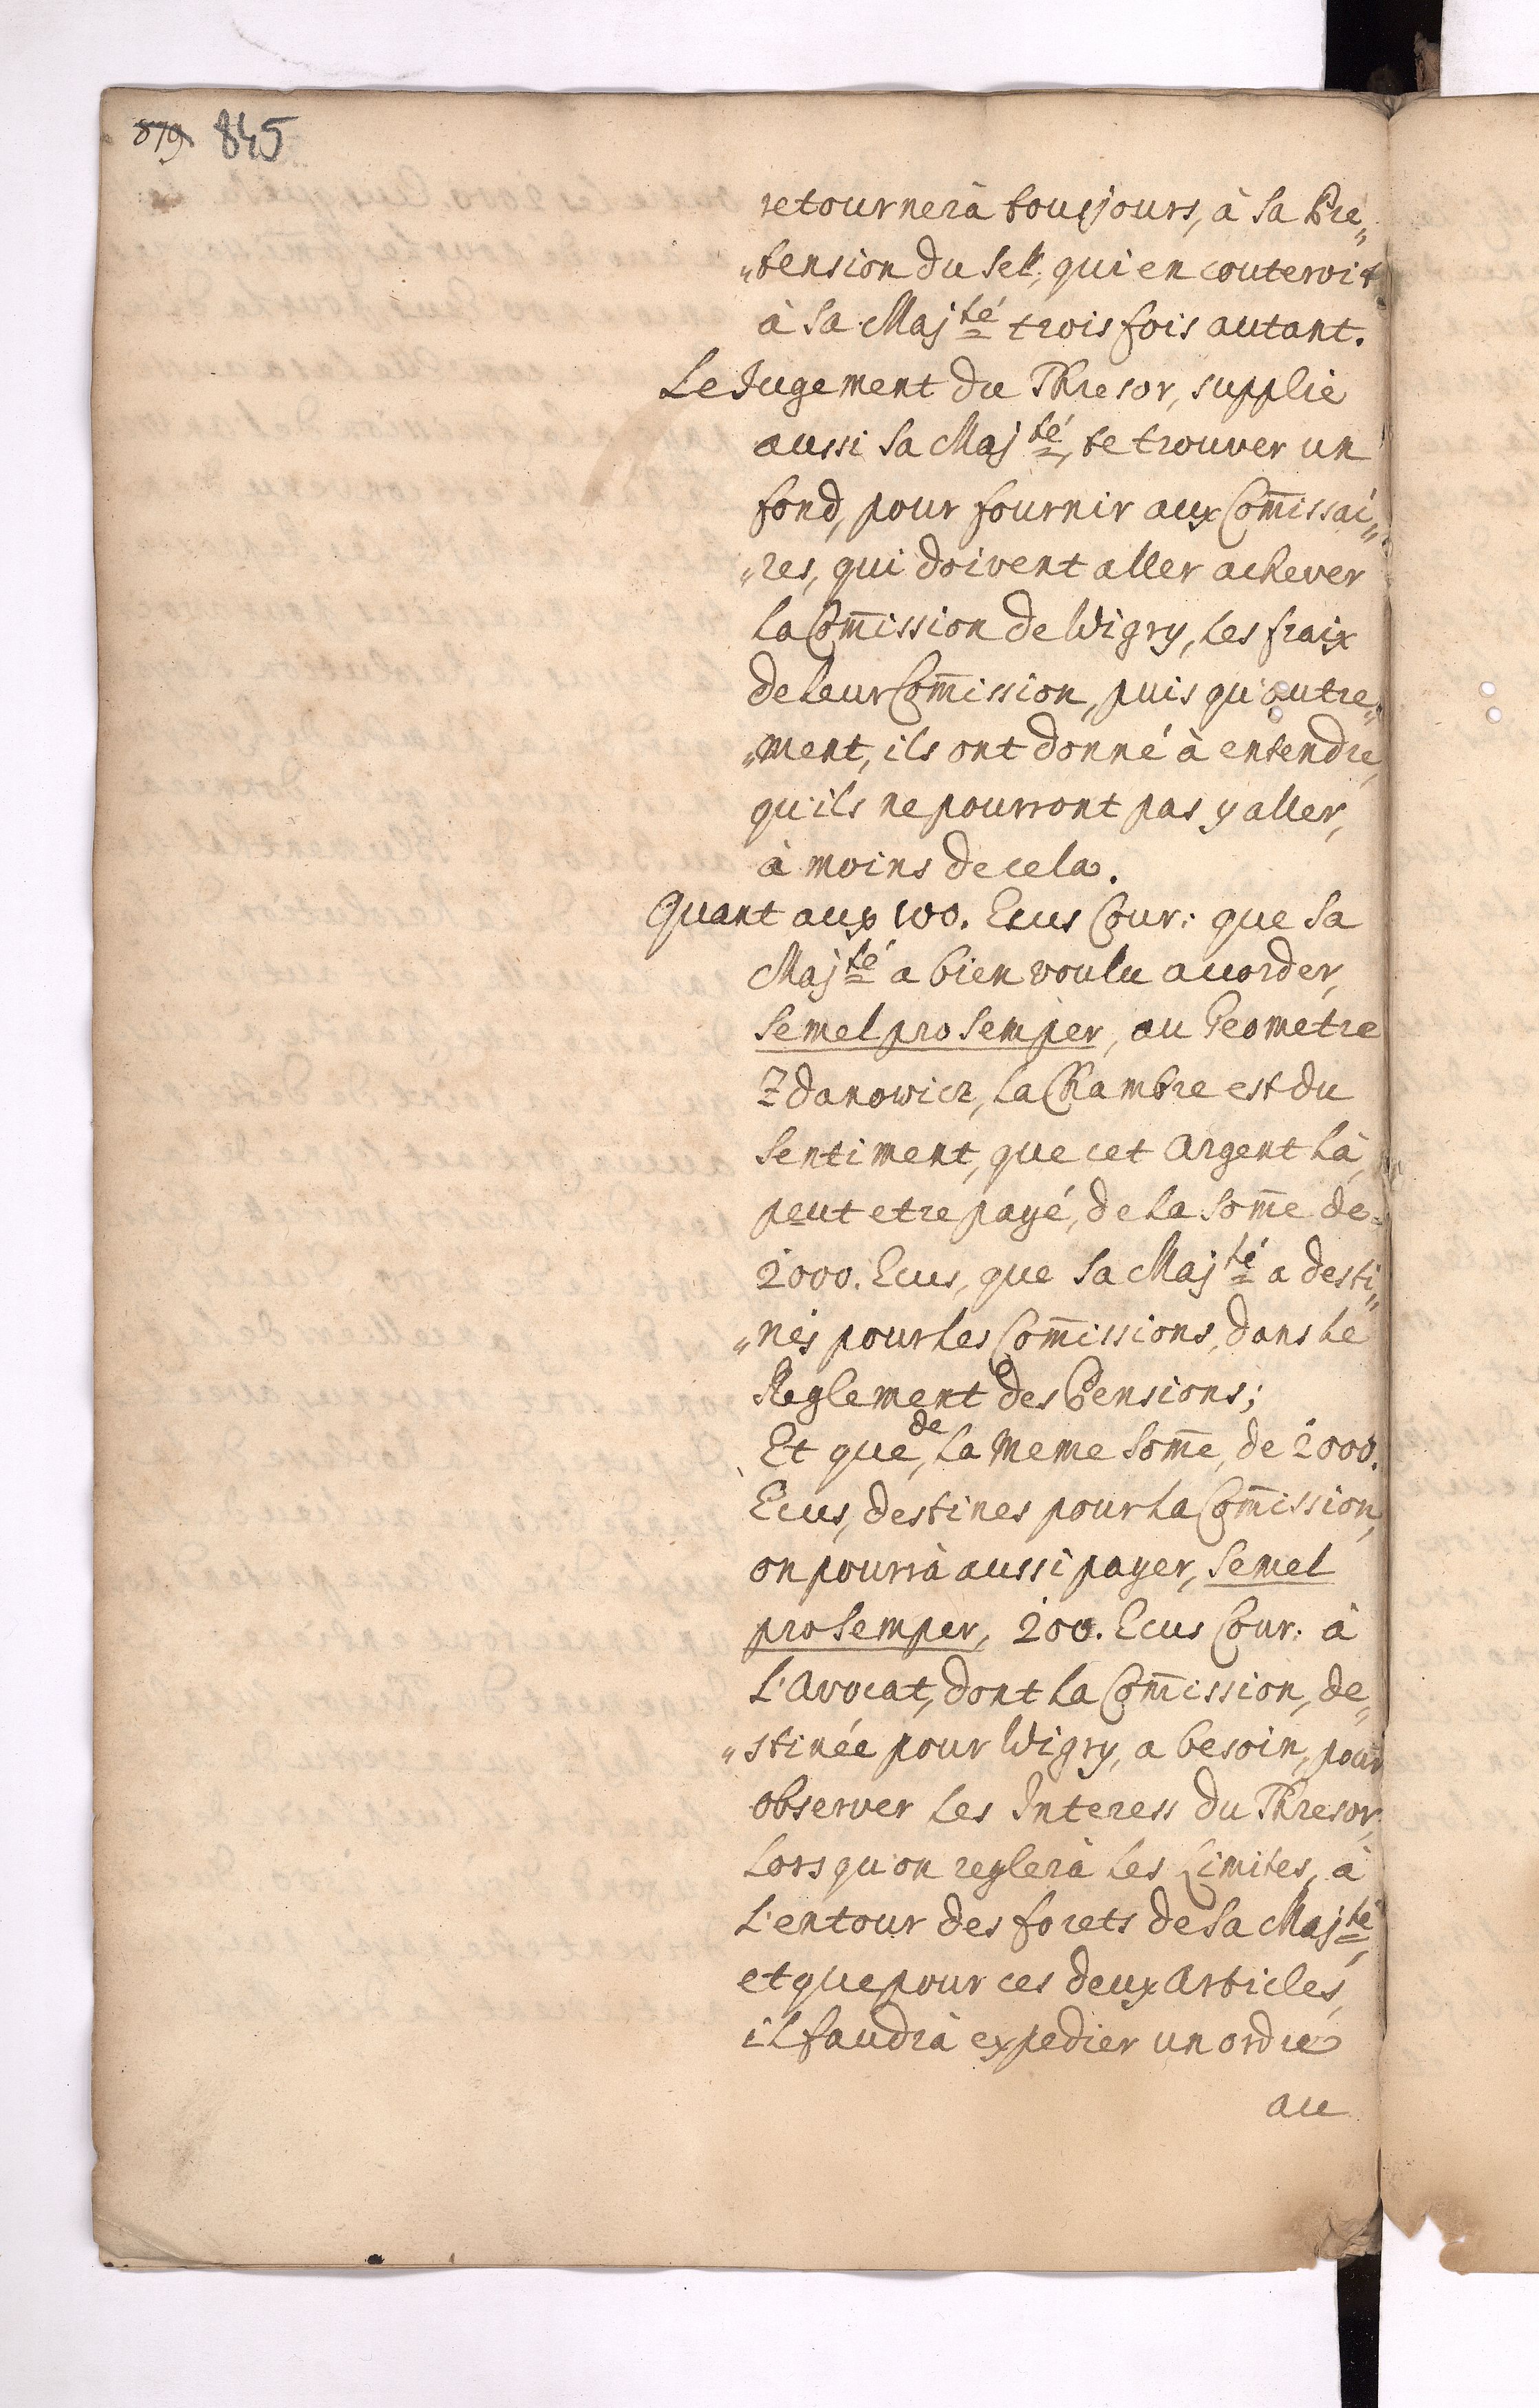 879 845
retournerà tousjours, à sa Pre„
„tension du Sel, qui en couteroit
à Sa Maj.té trois fois autant.
Le Jugement du Thresor, supplie
aussi Sa Maj.té, de trouver un
fond, pour fournir aux Com̄issai„
„res, qui doivent aller achever
La Com̄ission de Wigry, les fraix
de leur Com̄ission, puis qu'autre„
„ment, ils ont donné à entendre,
qu'ils ne pourront pas y aller,
à moins de cela.
Quant aux 100. Ecus Cour: que Sa
Maj.té a bien voulu accorder,
Semel pro Semper, au Geometre
Zdanowicz, la Chambre est du
Sentiment, que cet Argent là,
peut etre payé, de la Som̄e de
2000. Ecus, que Sa Maj.té a desti„
„nés pour les Com̄issions, dans le
Reglement des Pensions;
Et que, de la meme Som̄e, de 2000.
Ecus, destines pour la Com̄ission,
on pourrà aussi payer, Semel
pro Semper, 200. Ecus Cour: à
L'Avocat, dont la Com̄ission, de„
„stinée pour Wigry, a besoin, pour
observer les Interess du Thresor,
Lorsqu'on reglerà les Limites, à
L'entour des forets de Sa Maj.té,
et que pour ces deux Articles,
il faudrà expedier un ordre
au